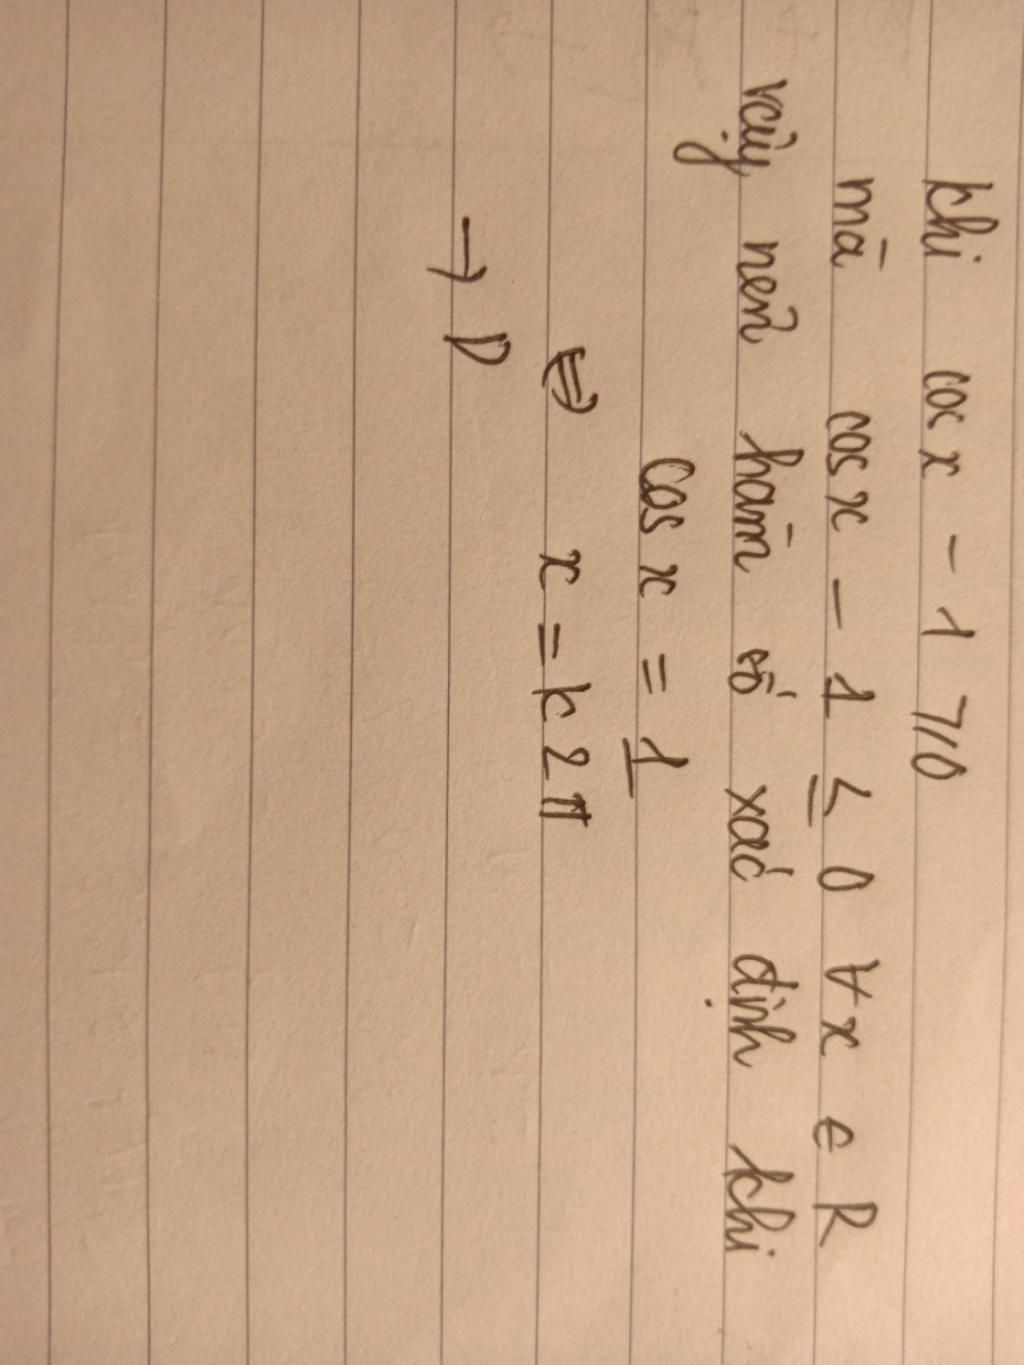 khi cos x - 1 ⩾ 0
mà cos x - 1 ≤ 0 ∀x ∈ R
vậy nên hàm số xác định khi
cos x = 1
⇔ x = k2π
→ D